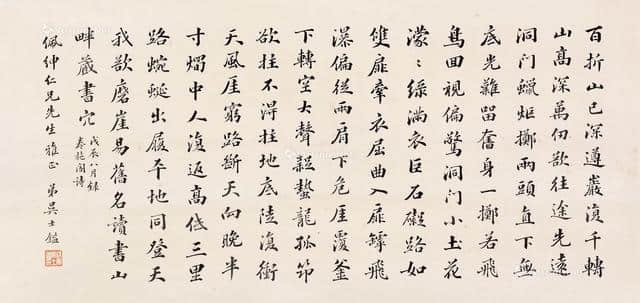 百折山已深遵巖復千轉
山高深萬仞欲往途先遠
洞門蠟炬擲兩頭直下無
底光難留奮身一擲若飛
鳥回視偏驚洞門小土花
濛〻綠滿衣巨石礙路如
雙扉牽衣屈曲入扉罅飛
瀑偏從兩肩下危厓覆釜
下轉空大聲謖螯龍孤筇
欲拄不得拄地底陸復衝
天風厓窮路斷天向晚半
寸熠中人復返高低三里
路蜿蜒出履平地同登天
我欲磨崖易舊名讀書山
畔藏書穴
戊辰八月錄
卷施閣詩
佩紳仁兄先生雅正 弟吳士鑑